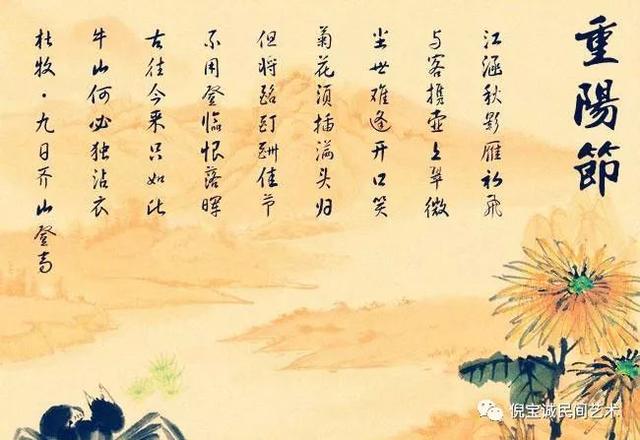 重陽節
江涵秋影雁初飛
与客携壶上翠微
尘世难逢开口笑
菊花须插满头归
但将酩酊酬佳节
不用登临恨落晖
古往今来只如此
牛山何必独沾衣
杜牧·九日齐山登高
倪宝诚民间艺术